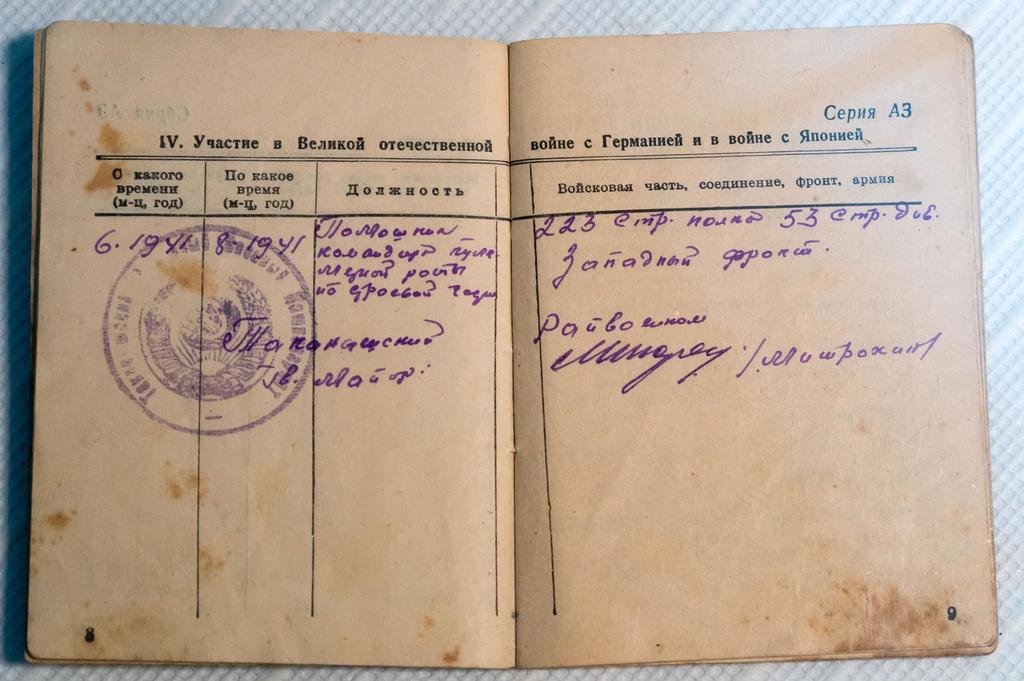 Серия АЗ
IV. Участие в Великой отечественной войне с Германией и в войне с Японией
С какого времени (м-ц, год)
По какое время (м-ц, год)
Должность
Войсковая часть, соединение, фронт, армия
6. 1941
8. 1941
Помошник
командира пуле
метной роты
по строевой части
223 Стр. полка 53 Стр. див.
Западный фронт.
Райвоенком
/Митрохин/
Гв. Майор:
8
9